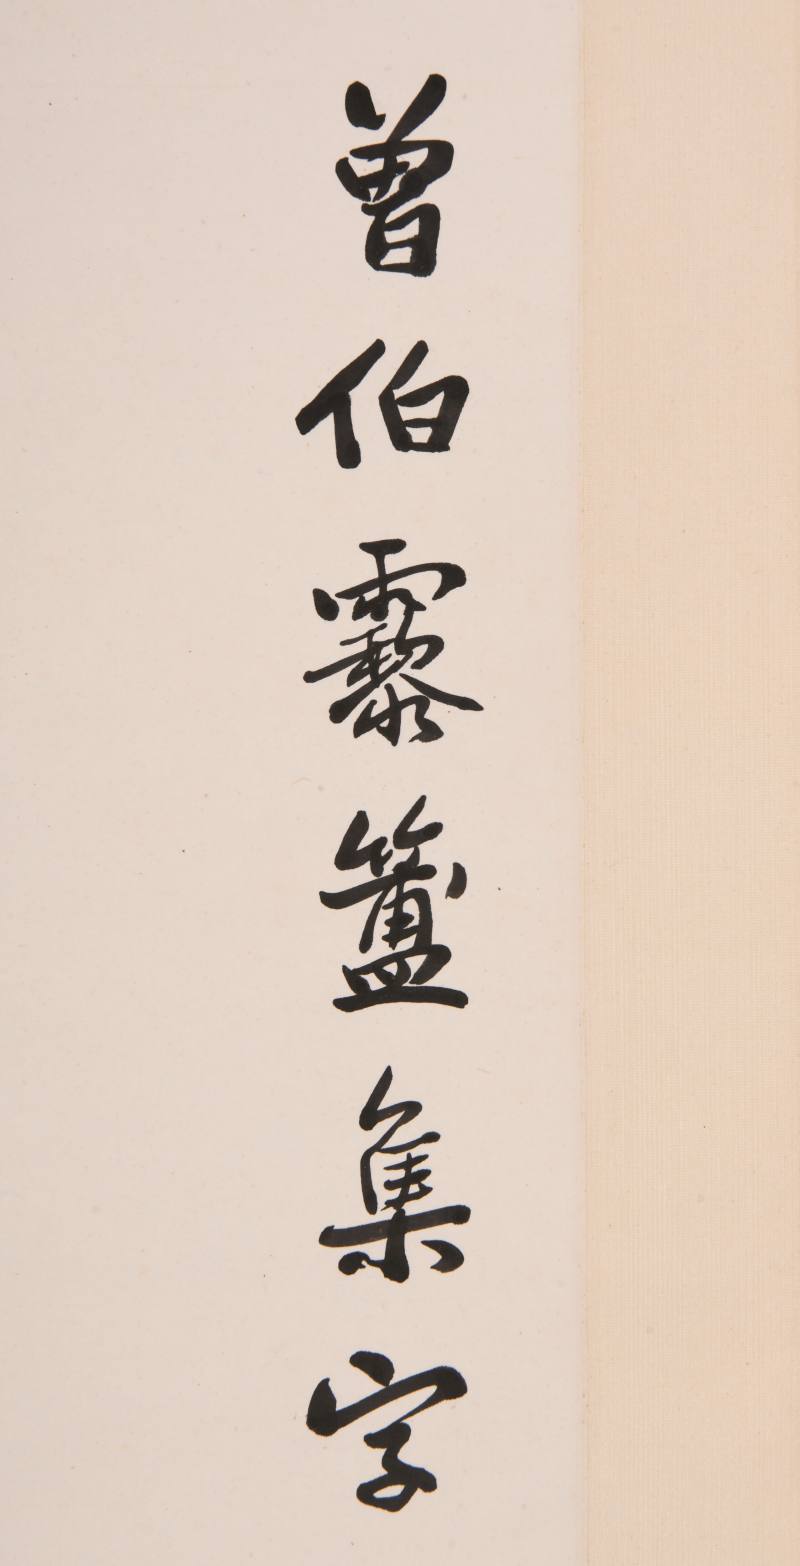 曾伯霥簠集字